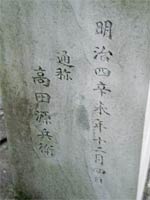 明治四辛未年十二月四日
通称
高田源兵衛